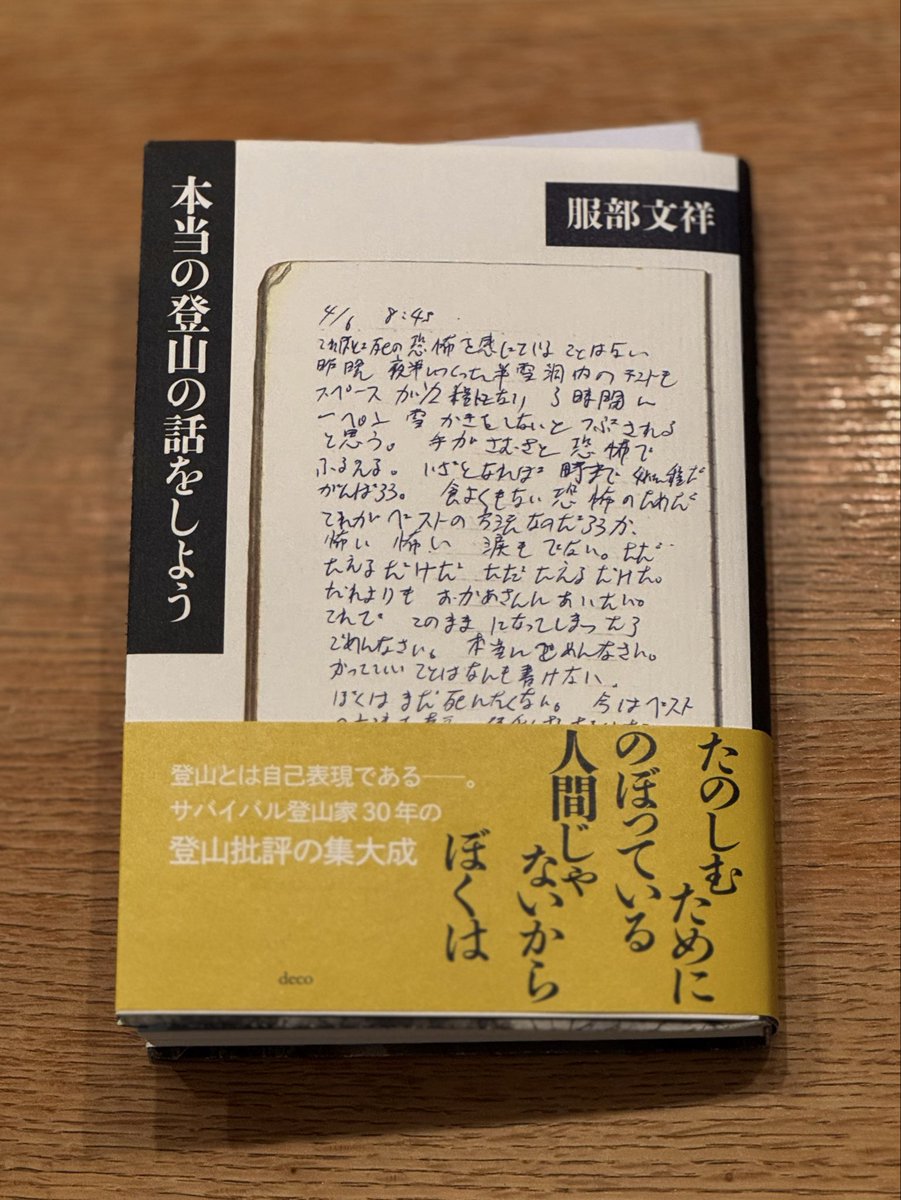 本当の登山の話をしよう
服部文祥
4/6 8:45
これほど死の恐怖を感じていることはない
昨晩 夜半につくった半雪洞内のテントも
スペースが1/2程になり 3時間に
一ぺん 雪かきをしないとつぶされる
と思う。 手がさむさと恐怖で
ふるえる。 いざとなれば 時まで
がんばろう。 食よくもない 恐怖のためだ
これがベストの方法なのだろうか、
怖い 怖い 涙もでない。ただ
たえるだけだ ただ たえるだけだ。
だれよりも おかあさんにあいたい。
これで このまま になってしまったら
ごめんなさい。 本当にごめんなさい。
かっていいことはなんも書けない。
ぼくはまだ死にたくない。 今はベスト
たのしむために
のぼっている
人間じゃないから
ぼくは
登山とは自己表現である――。
サバイバル登山家30年の
登山批評の集大成
deco